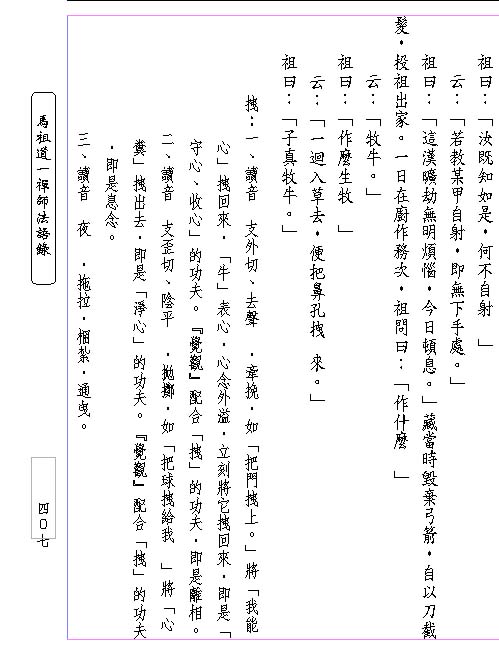 祖曰：「汝既知如是，何不自射　」
云：「若教某甲自射，即無下手處。」
祖曰：「這漢曠劫無明煩惱，今日頓息。」藏當時毀棄弓箭，自以刀截
髮，投祖出家。一日在廚作務次，祖問曰：「作什麼　」
云：「牧牛。」
祖曰：「作麼生牧　」
云：「一迴入草去，便把鼻孔拽　來。」
祖曰：「子真牧牛。」
拽：一、讀音　支外切、去聲　，牽挽，如「把門拽上。」將「我能
心」拽回來，「牛」表心，心念外溢，立刻將它拽回來，即是「
守心、收心」的功夫。『覺觀』配合「拽」的功夫，即是離相。
二、讀音　支歪切、陰平　，拋擲，如「把球拽給我　」將「心
糞」拽出去，即是「淨心」的功夫。『覺觀』配合「拽」的功夫
，即是息念。
三、讀音　夜　，拖拉，梱紮，通曳。
馬祖道一禪師法語錄
四０七